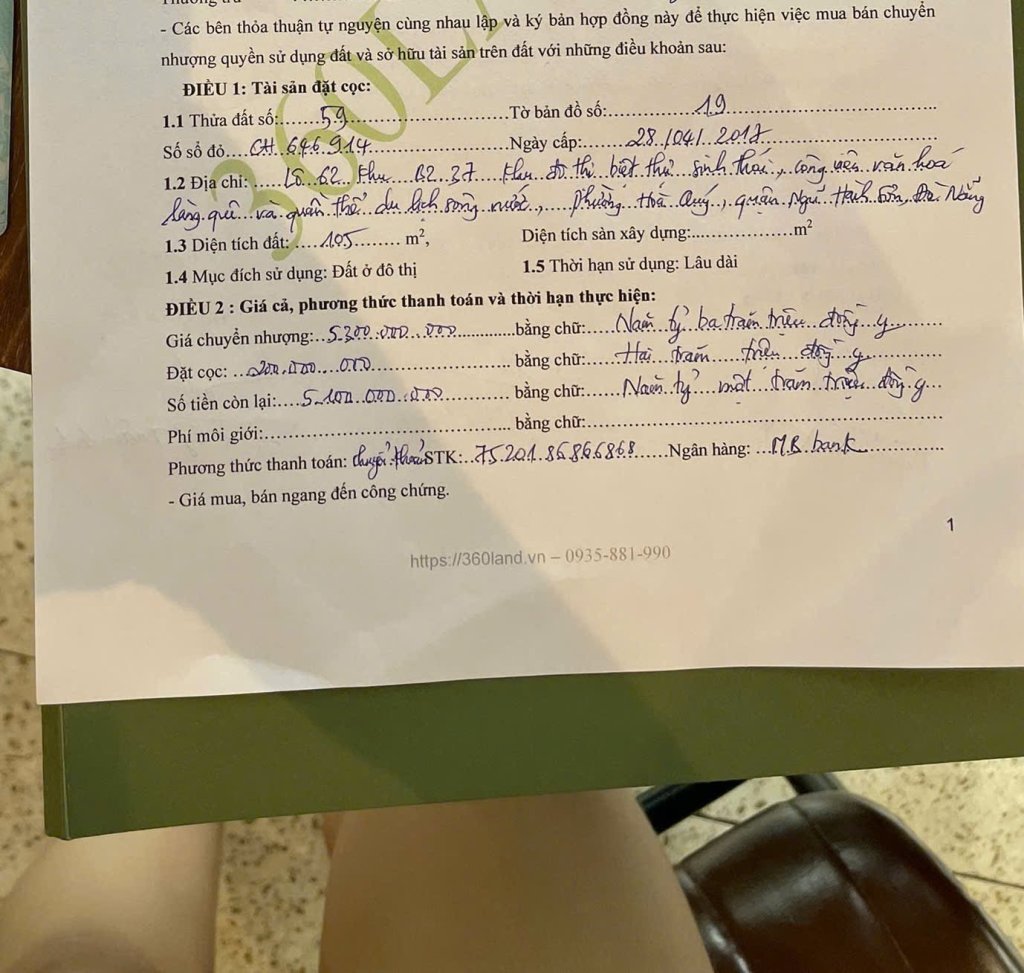 - Các bên thỏa thuận tự nguyện cùng nhau lập và ký bản hợp đồng này để thực hiện việc mua bán chuyển
nhượng quyền sử dụng đất và sở hữu tài sản trên đất với những điều khoản sau:
ĐIỀU 1: Tài sản đặt cọc:
1.1 Thửa đất số:......59..............................Tờ bản đồ số:...............19...............................
Số sổ đỏ....CH 646 914.........................Ngày cấp:........28./04/.2017...........................
1.2 Địa chỉ: .....Lô 62 Khu B2.37 khu đô thị biệt thự sinh thái, công viên văn hoá
làng quê và quần thể du lịch sông nước, phường Hoà Quý, quận Ngũ Hành Sơn, Đà Nẵng
1.3 Diện tích đất: ....105........ m², Diện tích sàn xây dựng:...................m²
1.4 Mục đích sử dụng: Đất ở đô thị 1.5 Thời hạn sử dụng: Lâu dài
ĐIỀU 2 : Giá cả, phương thức thanh toán và thời hạn thực hiện:
Giá chuyển nhượng:..5.300.000.000............bằng chữ:.....Năm tỷ ba trăm triệu đồng y.........
Đặt cọc: ..200.000.000............................ bằng chữ:......Hai trăm triệu đồng y...............
Số tiền còn lại:....5.100.000.000............. bằng chữ:......Năm tỷ một trăm triệu đồng y...
Phí môi giới:................................................bằng chữ:.................................................................
Phương thức thanh toán: chuyển khoản STK:..75.201.86866868......Ngân hàng: ...M.B bank...............
- Giá mua, bán ngang đến công chứng.
1
https://360land.vn – 0935-881-990